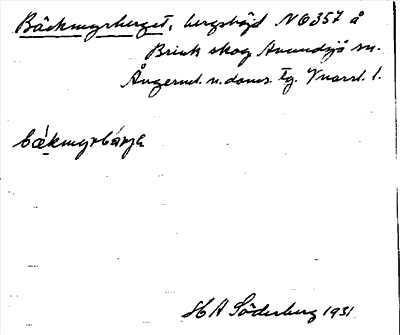 Bäckmyrberget, bergshöjd NQ357 å
Brink skog Anundsjö sn.
Ångerml. n. doms. tg. Vnorrl. l.
bækmyrbárjə
H A Söderberg 1931